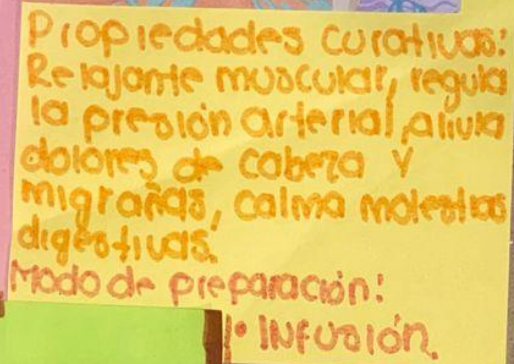 Propiedades curativas:
Relajante muscular, regula
la presión arterial, alivia
dolores de cabeza y
migrañas, calma molestias
digestivas.
Modo de preparación:
1• INFUSIÓN.